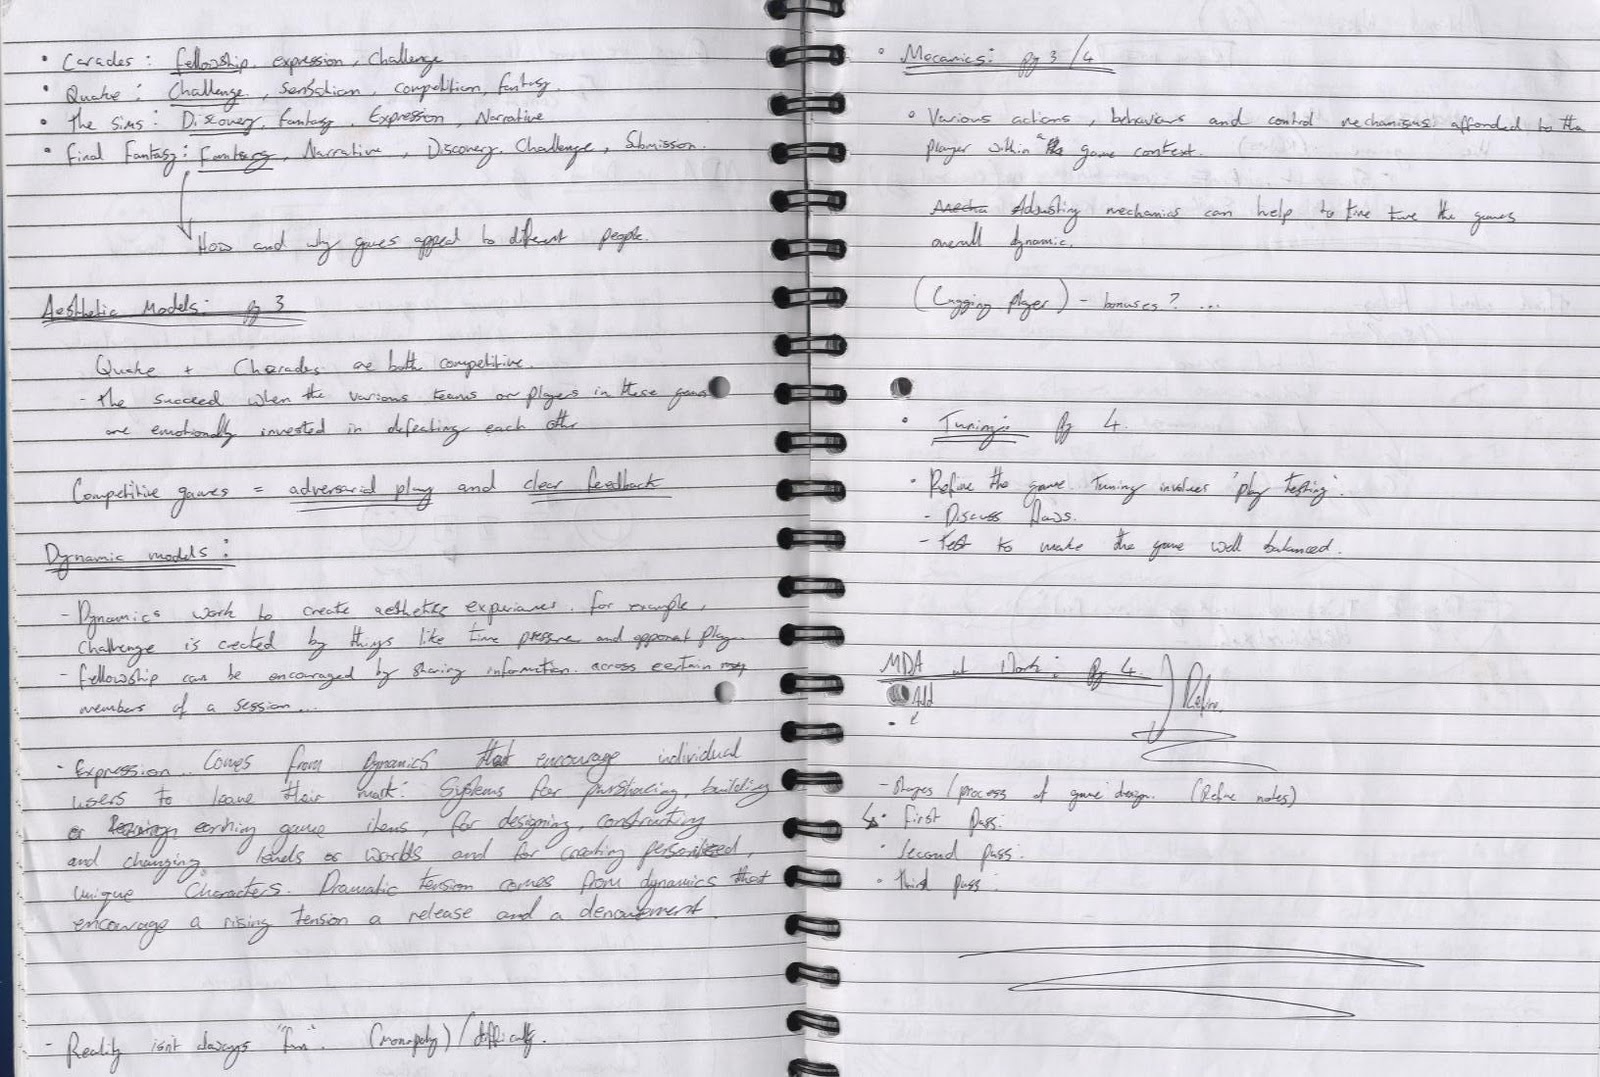 • Carades : Fellowship, expression, Challenge
• Quake : Challenge, Sensation, competition, Fantasy.
• The Sims : Discovery, Fantasy, Expression, Narrative
• Final Fantasy : Fantasy, Narrative, Discovery, Challenge, Submisson.
How and why games appeal to different people.
Aesthetic Models: pg 3
Quake + Charades are both competitive.
- The succeed when the various teams or players in these games
are emotionally invested in defeating each other
Competitive games = adversarial play and clear feedback
Dynamic models :
- Dynamics work to create aesthetic experiences. For example,
challenge is created by things like time pressure and opponent play.
- Fellowship can be encouraged by sharing information across certain
members of a session...
- Expression.. Comes from Dynamics that encourage individual
users to leave their mark: Systems for purshacing, building
or earning game items, for designing, constructing
and changing levels or worlds and for creating personilsed,
unique Characters. Dramatic tension comes from dynamics that
encourage a rising tension a release and a denoument.
- Reality isnt always "fun". (monopoly) / difficulty.
• Mecanics: pg 3/4
• Various actions, behaviors and control mechanisms afforded to the
player within a game context.
Mecha Adjusting mechanics can help to fine tune the games
overall dynamic.
(Lagging player) - bonuses? ...
• Tuning: Pg 4.
• Refine the game. Tuning involves 'play testing'.
- Discuss flaws.
- Test to make the game well balanced.
MDA at Work : Pg 4.
Add
Refine.
- Stages / process of game design. (Refine notes)
• First Pass:
• Second pass:
• Third pass: